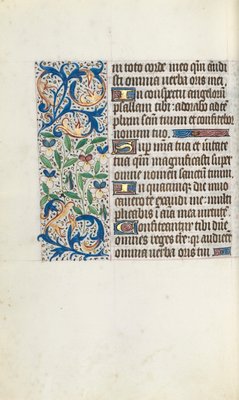 in toto corde meo qm audi
sti omnia verba oris mei
In conspectu angelorum
psallam tibi: adorabo ad te
plum sctm tuum et confitebor
nomini tuo.
Sup mia tua et vitate
tua qm magnificasti super
omne nomen sanctum tuum.
In quacumqz die invo
cavero te exaudi me: multi
plicabis i aia mea virtute
Confiteantur tibi dne
omnes reges tre: qz audierut
omnia verba oris tui